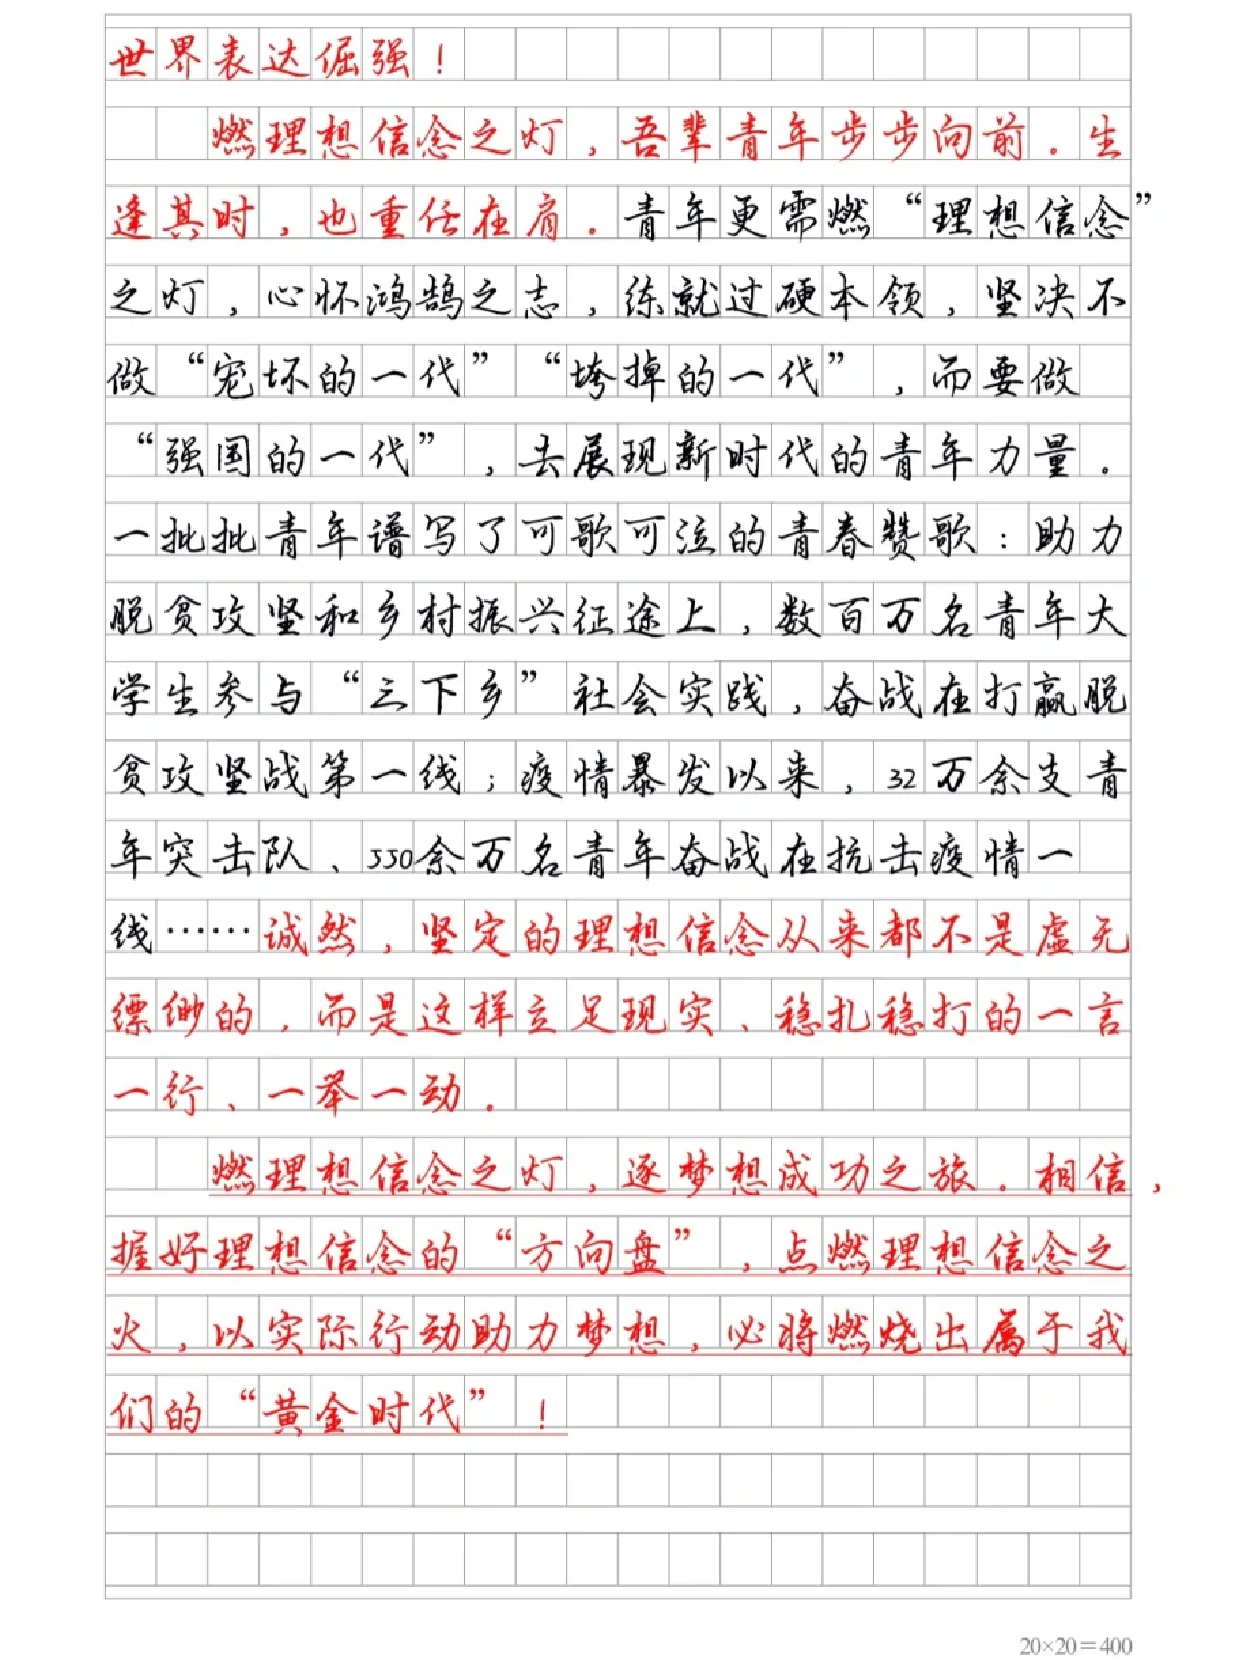 世界表达倔强！
燃理想信念之灯，吾辈青年步步向前．生
逢其时，也重任在肩．青年更需燃“理想信念”
之灯，心怀鸿鹄之志，练就过硬本领，坚决不
做“宠坏的一代”“垮掉的一代”，而要做
“强国的一代”，去展现新时代的青年力量．
一批批青年谱写了可歌可泣的青春赞歌：助力
脱贫攻坚和乡村振兴征途上，数百万名青年大
学生参与“三下乡”社会实践，奋战在打赢脱
贫攻坚战第一线；疫情暴发以来，32万余支青
年突击队、550余万名青年奋战在抗击疫情一
线……诚然，坚定的理想信念从来都不是虚无
缥缈的，而是这样立足现实、稳扎稳打的一言
一行、一举一动．
燃理想信念之灯，逐梦想成功之旅．相信，
握好理想信念的“方向盘”，点燃理想信念之
火，以实际行动助力梦想，必将燃烧出属于我
们的“黄金时代”！
20×20＝400